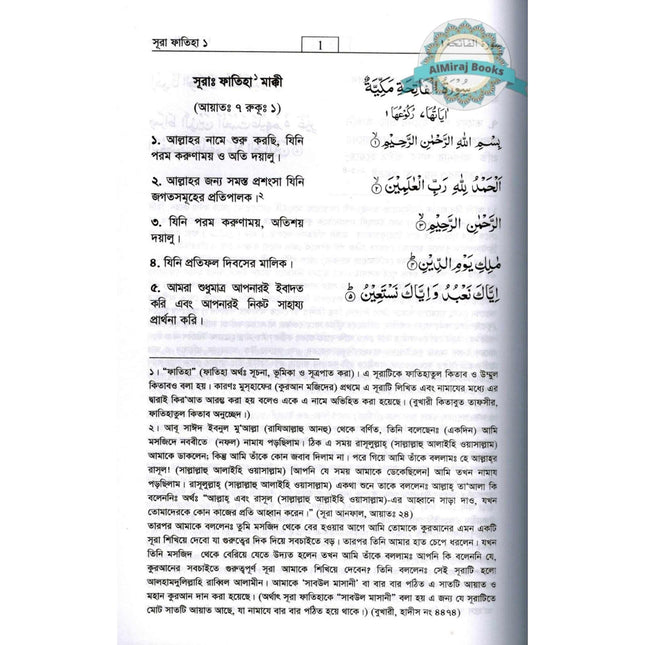 সূরা ফাতিহা ১
1
AlMiraj Books
সূরাঃ ফাতিহা১ মাক্কী
(আয়াতঃ ৭ রুকূঃ ১)
سُوْرَةُ الْفَاتِحَةِ مَكِّيَّةٌ
اٰيَاتُهَا ٧ رُكُوْعُهَا ١
১. আল্লাহর নামে শুরু করছি, যিনি
পরম করুণাময় ও অতি দয়ালু।
بِسْمِ اللّٰهِ الرَّحْمٰنِ الرَّحِيْمِ ۝١
২. আল্লাহর জন্য সমস্ত প্রশংসা যিনি
জগতসমূহের প্রতিপালক।২
اَلْحَمْدُ لِلّٰهِ رَبِّ الْعٰلَمِيْنَ ۝٢
৩. যিনি পরম করুণাময়, অতিশয়
দয়ালু।
الرَّحْمٰنِ الرَّحِيْمِ ۝٣
৪. যিনি প্রতিফল দিবসের মালিক।
مٰلِكِ يَوْمِ الدِّيْنِ ۝٤
৫. আমরা শুধুমাত্র আপনারই ইবাদত
করি এবং আপনারই নিকট সাহায্য
প্রার্থনা করি।
اِيَّاكَ نَعْبُدُ وَاِيَّاكَ نَسْتَعِيْنُ ۝٥
১। “ফাতিহা” (ফাতিহা অর্থঃ সূচনা, ভূমিকা ও সূত্রপাত করা)। এ সূরাটিকে ফাতিহাতুল কিতাব ও উম্মুল
কিতাবও বলা হয়। কারণঃ মুসহাফের (কুরআন মজিদের) প্রথমে এ সূরাটি লিখিত এবং নামাযের মধ্যে এর
দ্বারাই কির'আত আরম্ভ করা হয় বলেও একে এ নামে অভিহিত করা হয়েছে। (বুখারী কিতাবুত তাফসীর,
ফাতিহাতুল কিতাব অনুচ্ছেদ।)
২। আবূ সাঈদ ইবনুল মু'আল্লা (রাযিআল্লাহু আনহু) থেকে বর্ণিত, তিনি বলেছেনঃ (একদিন) আমি
মসজিদে নববীতে (নফল) নামায পড়ছিলাম। ঠিক এ সময় রাসূলুল্লাহ্ (সাল্লাল্লাহু আলাইহি ওয়াসাল্লাম)
আমাকে ডাকলেন; কিন্তু আমি তাঁকে কোন জবাব দিলাম না। পরে গিয়ে আমি তাঁকে বললামঃ হে আল্লাহর
রাসূল! (সাল্লাল্লাহু আলাইহি ওয়াসাল্লাম) [আপনি যে সময় আমাকে ডেকেছিলেন] আমি তখন নামায
পড়ছিলাম। রাসূলুল্লাহ্ (সাল্লাল্লাহু আলাইহি ওয়াসাল্লাম) একথা শুনে তাকে বললেনঃ আল্লাহ্ তা'আলা কি
বলেননিঃ অর্থঃ “আল্লাহ্ এবং রাসূল (সাল্লাল্লাহু আলাইহি ওয়াসাল্লাম)-এর আহ্বানে সাড়া দাও, যখন
তোমাদেরকে কোন কাজের প্রতি আহ্বান করেন।” (সূরা আনফাল, আয়াতঃ ২৪)
তারপর আমাকে বললেনঃ তুমি মসজিদ থেকে বের হওয়ার আগে আমি তোমাকে কুরআনের এমন একটি
সূরা শিখিয়ে দেবো যা গুরুত্বের দিক দিয়ে সবচাইতে বড়। তারপর তিনি আমার হাত চেপে ধরলেন। যখন
তিনি মসজিদ থেকে বেরিয়ে যেতে উদ্যত হলেন তখন আমি তাঁকে বললামঃ আপনি কি বলেননি যে,
কুরআনের সবচাইতে গুরুত্বপূর্ণ সূরা আমাকে শিখিয়ে দেবেন? তিনি বললেনঃ সেই সূরাটি হলো
আলহামদুলিল্লাহি রাব্বিল আলামীন। আমাকে ‘সাবউল মাসানী’ বা বার বার পঠিত এ সাতটি আয়াত ও
মহান কুরআন দান করা হয়েছে। (অর্থাৎ সূরা ফাতিহাকে “সাবউল মাসানী” বলা হয় এ জন্য যে সূরাটিতে
মোট সাতটি আয়াত আছে, যা নামাযে বার বার পঠিত হয়ে থাকে।) (বুখারী, হাদীস নং ৪৪৭৪)